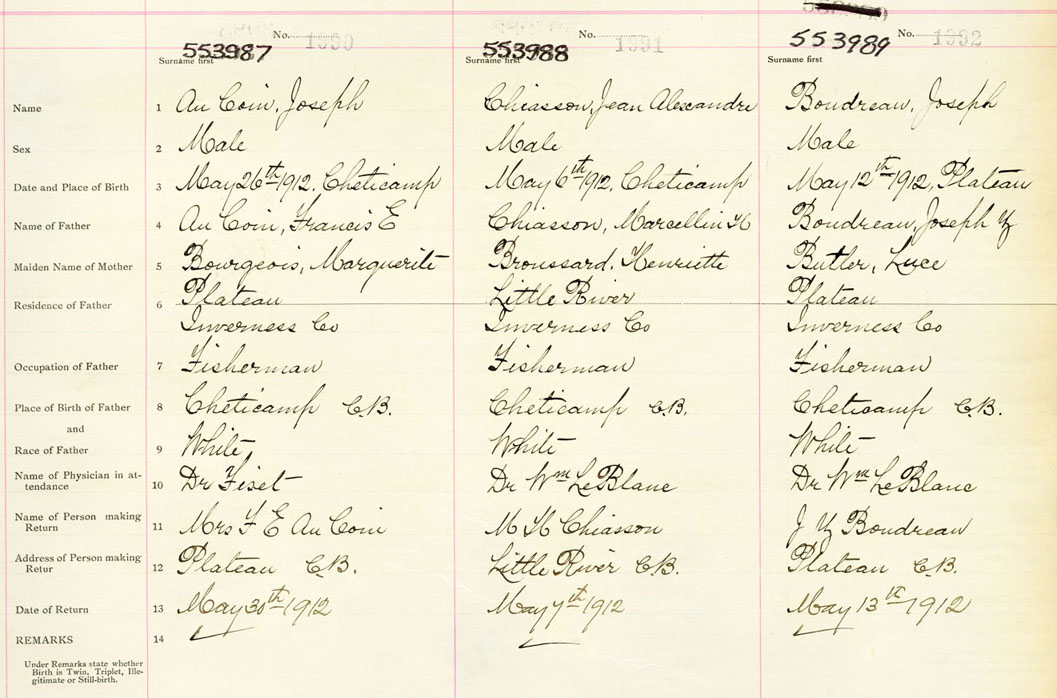 No. 1990 No. 1991 No. 1992
553987 553988 553989
Surname first Surname first Surname first
Name 1 Au Coin, Joseph Chiasson, Jean Alexandre Boudreau, Joseph
Sex 2 Male Male Male
Date and Place of Birth 3 May 26th 1912, Cheticamp May 6th 1912, Cheticamp May 12th 1912, Plateau
Name of Father 4 Au Coin, Francis E Chiasson, Marcellin H Boudreau, Joseph
Maiden Name of Mother 5 Bourgeois, Marguerite Broussard, Henriette Butler, Luce
Residence of Father 6 Plateau Little River Plateau
Inverness Co Inverness Co Inverness Co
Occupation of Father 7 Fisherman Fisherman Fisherman
Place of Birth of Father 8 Cheticamp C.B. Cheticamp C.B. Cheticamp C.B.
and
Race of Father 9 White White White
Name of Physician in at-
tendance 10 Dr Fiset Dr Wm LeBlanc Dr Wm LeBlanc
Name of Person making
Return 11 Mrs F E Au Coin M H Chiasson J Boudreau
Address of Person making
Retur 12 Plateau C.B. Little River C.B. Plateau C.B.
Date of Return 13 May 30th 1912 May 7th 1912 May 13th 1912
REMARKS 14
Under Remarks state whether
Birth is Twin, Triplet, Ille-
gitimate or Still-birth.